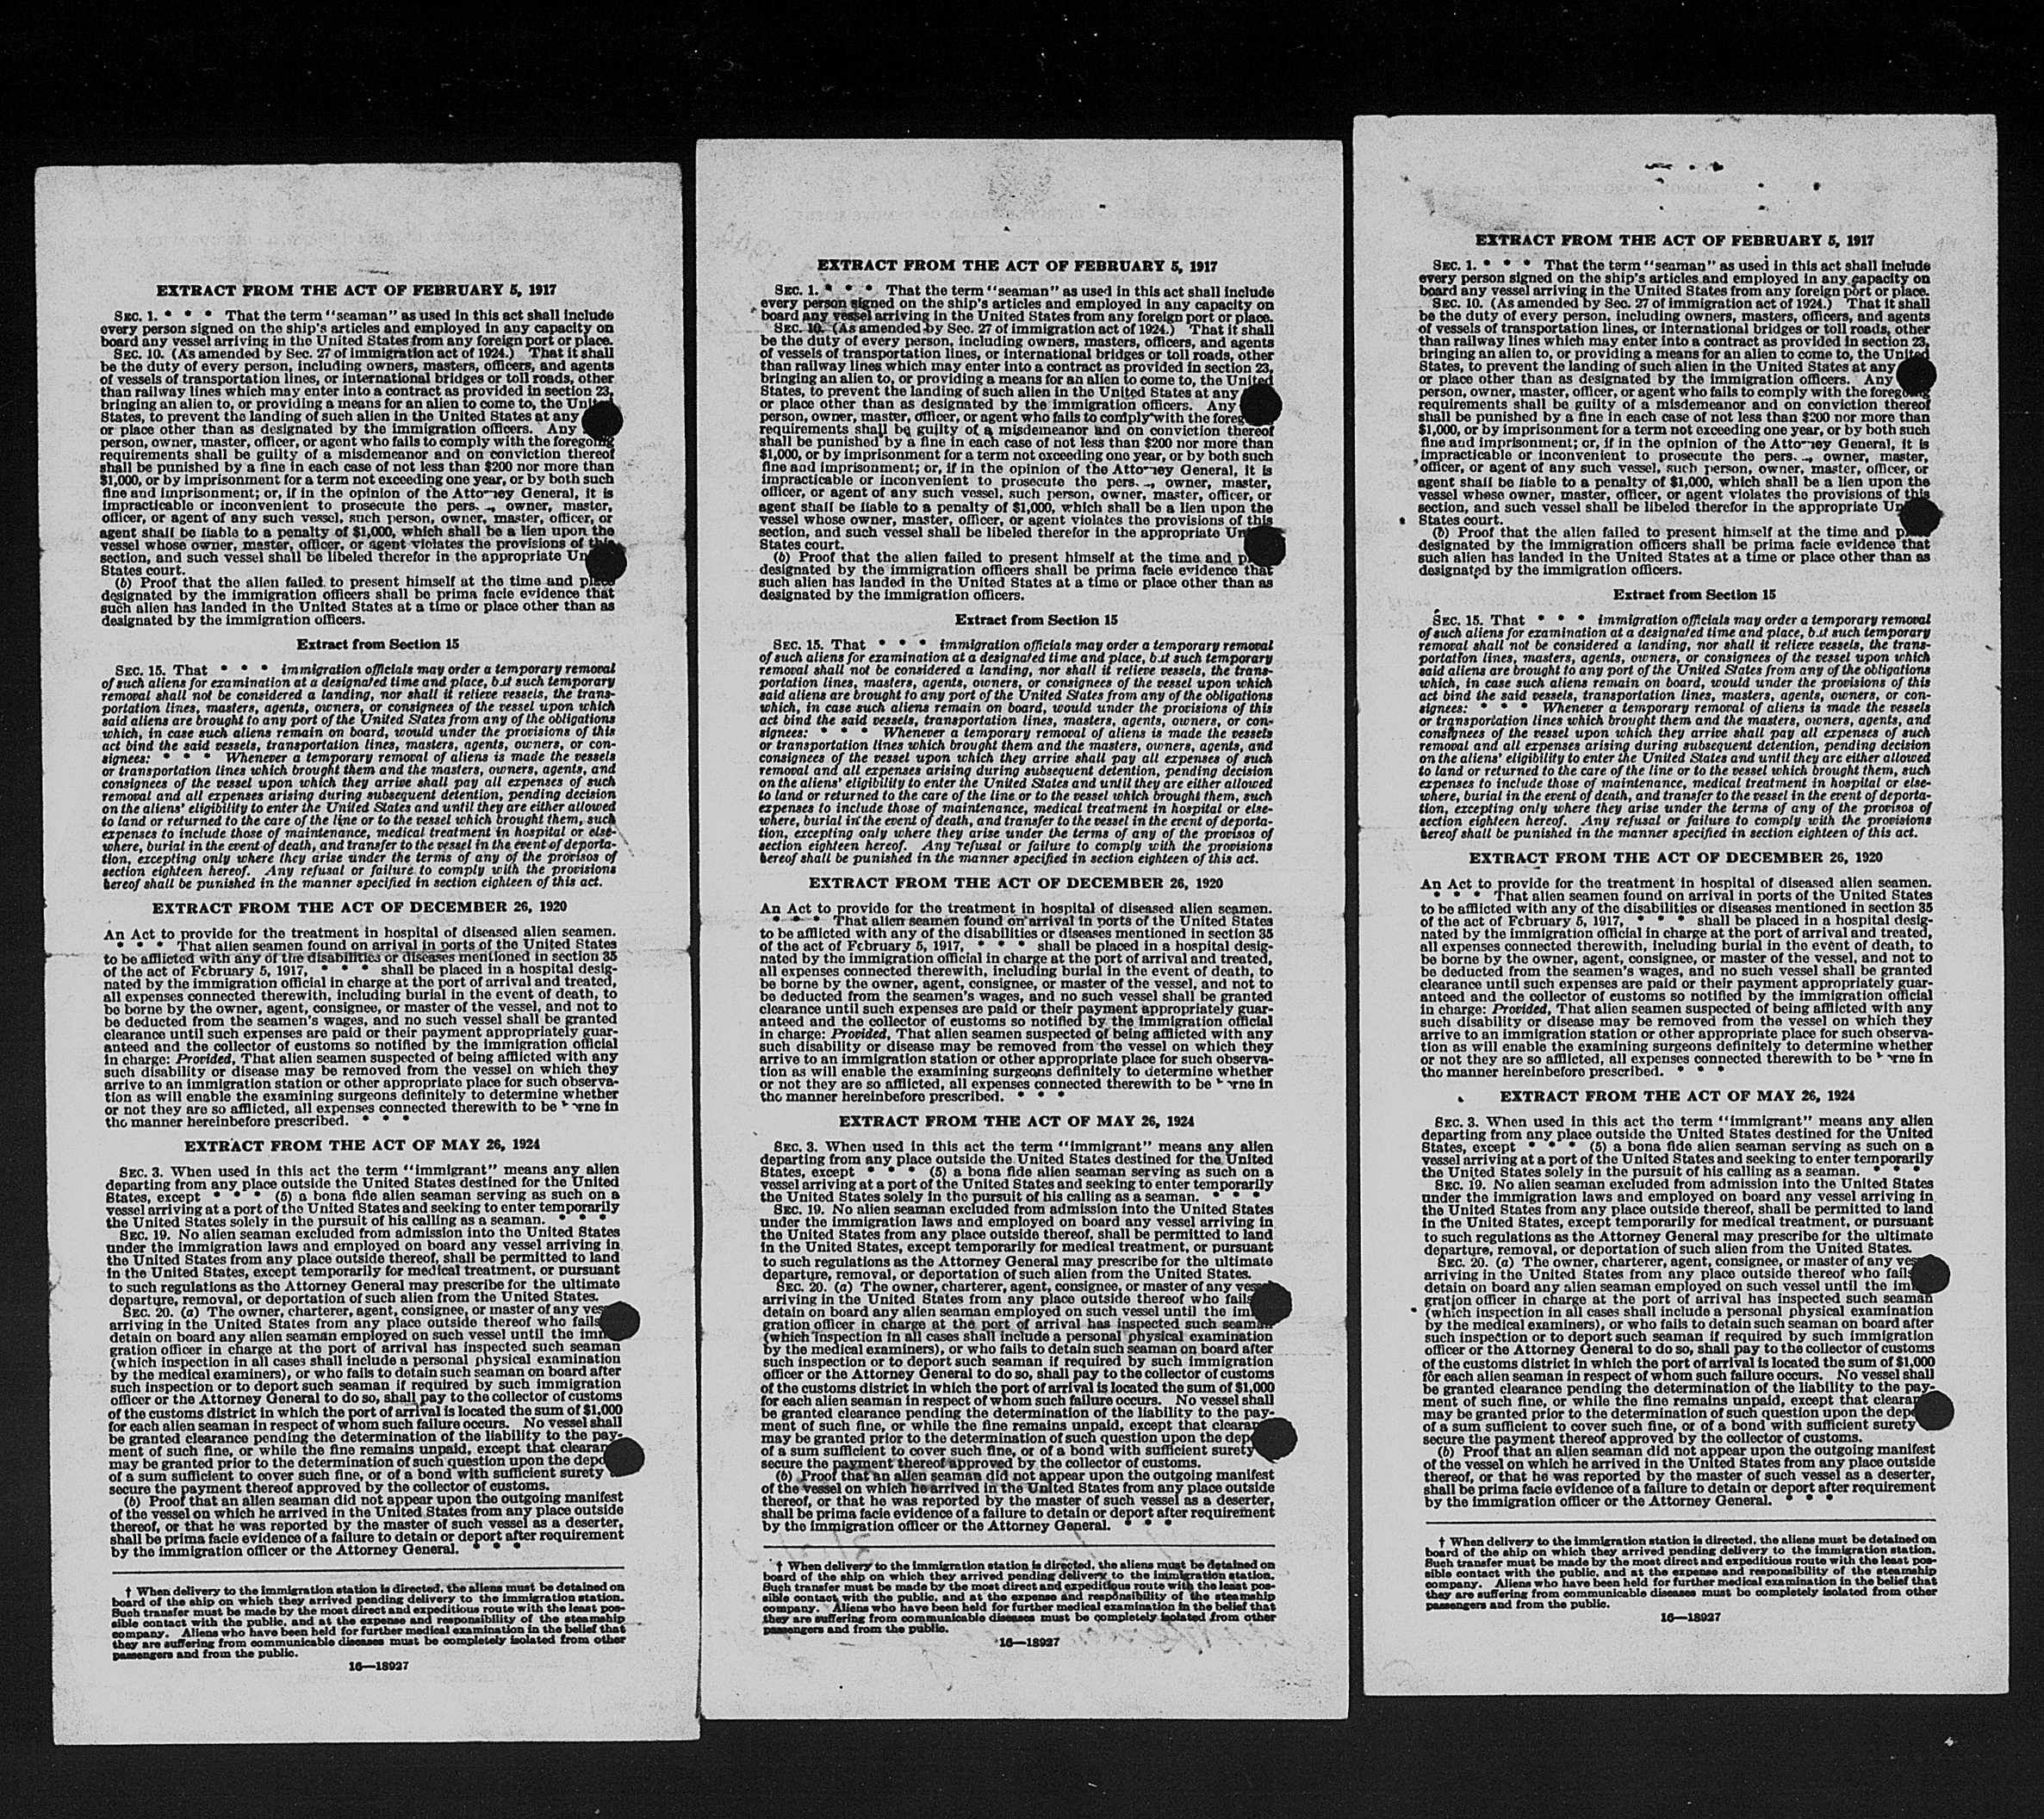 EXTRACT FROM THE ACT OF FEBRUARY 5, 1917
SEC. 1. * * * That the term "seaman" as used in this act shall include
every person signed on the ship's articles and employed in any capacity on
board any vessel arriving in the United States from any foreign port or place.
SEC. 10. (As amended by Sec. 27 of immigration act of 1924.) That it shall
be the duty of every person, including owners, masters, officers, and agents
of vessels of transportation lines, or international bridges or toll roads, other
than railway lines which may enter into a contract as provided in section 23,
bringing an alien to, or providing a means for an alien to come to, the
States, to prevent the landing of such alien in the United States at any
or place other than as designated by the immigration officers. Any
person, owner, master, officer, or agent who fails to comply with the foregoing
requirements shall be guilty of a misdemeanor and on conviction thereof
shall be punished by a fine in each case of not less than $200 nor more than
$1,000, or by imprisonment for a term not exceeding one year, or by both such
fine and imprisonment; or, if in the opinion of the Attorney General, it is
impracticable or inconvenient to prosecute the owner, master,
officer, or agent of any such vessel, such person, owner, master, officer, or
agent shall be liable to a penalty of $1,000, which shall be a lien upon the
vessel whose owner, master, officer, or agent violates the provisions of this
section, and such vessel shall be libeled therefor in the appropriate
States court.
(b) Proof that the alien failed to present himself at the time and place
designated by the immigration officers shall be prima facie evidence that
such alien has landed in the United States at a time or place other than as
designated by the immigration officers.
Extract from Section 15
SEC. 15. That * * * immigration officials may order a temporary removal
of such aliens for examination at a designated time and place, but such temporary
removal shall not be considered a landing, nor shall it relieve vessels, the trans-
portation lines, masters, agents, owners, or consignees of the vessel upon which
said aliens are brought to any port of the United States from any of the obligations
which, in case such aliens remain on board, would under the provisions of this
act bind the said vessels, transportation lines, masters, agents, owners, or con-
signees: * * * Whenever a temporary removal of aliens is made the vessels
or transportation lines which brought them and the masters, owners, agents, and
consignees of the vessel upon which they arrive shall pay all expenses of such
removal and all expenses arising during subsequent detention, pending decision
on the aliens' eligibility to enter the United States and until they are either allowed
to land or returned to the care of the line or to the vessel which brought them, such
expenses to include those of maintenance, medical treatment in hospital or else-
where, burial in the event of death, and transfer to the vessel in the event of deporta-
tion, excepting only where they arise under the terms of any of the provisos of
section eighteen hereof. Any refusal or failure to comply with the provisions
hereof shall be punished in the manner specified in section eighteen of this act.
EXTRACT FROM THE ACT OF DECEMBER 26, 1920
An Act to provide for the treatment in hospital of diseased alien seamen.
* * * That alien seamen found on arrival in ports of the United States
to be afflicted with any of the disabilities or diseases mentioned in section 35
of the act of February 5, 1917, * * * shall be placed in a hospital desig-
nated by the immigration official in charge at the port of arrival and treated,
all expenses connected therewith, including burial in the event of death, to
be borne by the owner, agent, consignee, or master of the vessel, and not to
be deducted from the seamen's wages, and no such vessel shall be granted
clearance until such expenses are paid or their payment appropriately guar-
anteed and the collector of customs so notified by the immigration official
in charge: Provided, That alien seamen suspected of being afflicted with any
such disability or disease may be removed from the vessel on which they
arrive to an immigration station or other appropriate place for such observa-
tion as will enable the examining surgeons definitely to determine whether
or not they are so afflicted, all expenses connected therewith to be borne in
the manner hereinbefore prescribed. * * *
EXTRACT FROM THE ACT OF MAY 26, 1924
SEC. 3. When used in this act the term "immigrant" means any alien
departing from any place outside the United States destined for the United
States, except * * * (5) a bona fide alien seaman serving as such on a
vessel arriving at a port of the United States and seeking to enter temporarily
the United States solely in the pursuit of his calling as a seaman. * * *
SEC. 19. No alien seaman excluded from admission into the United States
under the immigration laws and employed on board any vessel arriving in
the United States from any place outside thereof, shall be permitted to land
in the United States, except temporarily for medical treatment, or pursuant
to such regulations as the Attorney General may prescribe for the ultimate
departure, removal, or deportation of such alien from the United States.
SEC. 20. (a) The owner, charterer, agent, consignee, or master of any
arriving in the United States from any place outside thereof who fails
detain on board any alien seaman employed on such vessel until the
gration officer in charge at the port of arrival has inspected such seaman
(which inspection in all cases shall include a personal physical examination
by the medical examiners), or who fails to detain such seaman on board after
such inspection or to deport such seaman if required by such immigration
officer or the Attorney General to do so, shall pay to the collector of customs
of the customs district in which the port of arrival is located the sum of $1,000
for each alien seaman in respect of whom such failure occurs. No vessel shall
be granted clearance pending the determination of the liability to the pay-
ment of such fine, or while the fine remains unpaid, except that
may be granted prior to the determination of such question upon the
of a sum sufficient to cover such fine, or of a bond with sufficient surety
secure the payment thereof approved by the collector of customs.
(b) Proof that an alien seaman did not appear upon the outgoing manifest
of the vessel on which he arrived in the United States from any place outside
thereof, or that he was reported by the master of such vessel as a deserter,
shall be prima facie evidence of a failure to detain or deport after requirement
by the immigration officer or the Attorney General. * * *
† When delivery to the immigration station is directed, the aliens must be detained on
board of the ship on which they arrived pending delivery to the immigration station.
Such transfer must be made by the most direct and expeditious route with the least pos-
sible contact with the public, and at the expense and responsibility of the steamship
company. Aliens who have been held for further medical examination in the belief that
they are suffering from communicable diseases must be completely isolated from other
passengers and from the public.
16—18927
EXTRACT FROM THE ACT OF FEBRUARY 5, 1917
SEC. 1. * * * That the term "seaman" as used in this act shall include
every person signed on the ship's articles and employed in any capacity on
board any vessel arriving in the United States from any foreign port or place.
SEC. 10. (As amended by Sec. 27 of immigration act of 1924.) That it shall
be the duty of every person, including owners, masters, officers, and agents
of vessels of transportation lines, or international bridges or toll roads, other
than railway lines which may enter into a contract as provided in section 23,
bringing an alien to, or providing a means for an alien to come to, the United
States, to prevent the landing of such alien in the United States at any
or place other than as designated by the immigration officers. Any
person, owner, master, officer, or agent who fails to comply with the
requirements shall be guilty of a misdemeanor and on conviction thereof
shall be punished by a fine in each case of not less than $200 nor more than
$1,000, or by imprisonment for a term not exceeding one year, or by both such
fine and imprisonment; or, if in the opinion of the Attorney General, it is
impracticable or inconvenient to prosecute the owner, master,
officer, or agent of any such vessel, such person, owner, master, officer, or
agent shall be liable to a penalty of $1,000, which shall be a lien upon the
vessel whose owner, master, officer, or agent violates the provisions of this
section, and such vessel shall be libeled therefor in the appropriate
States court.
(b) Proof that the alien failed to present himself at the time and
designated by the immigration officers shall be prima facie evidence that
such alien has landed in the United States at a time or place other than as
designated by the immigration officers.
Extract from Section 15
SEC. 15. That * * * immigration officials may order a temporary removal
of such aliens for examination at a designated time and place, but such temporary
removal shall not be considered a landing, nor shall it relieve vessels, the trans-
portation lines, masters, agents, owners, or consignees of the vessel upon which
said aliens are brought to any port of the United States from any of the obligations
which, in case such aliens remain on board, would under the provisions of this
act bind the said vessels, transportation lines, masters, agents, owners, or con-
signees: * * * Whenever a temporary removal of aliens is made the vessels
or transportation lines which brought them and the masters, owners, agents, and
consignees of the vessel upon which they arrive shall pay all expenses of such
removal and all expenses arising during subsequent detention, pending decision
on the aliens' eligibility to enter the United States and until they are either allowed
to land or returned to the care of the line or to the vessel which brought them, such
expenses to include those of maintenance, medical treatment in hospital or else-
where, burial in the event of death, and transfer to the vessel in the event of deporta-
tion, excepting only where they arise under the terms of any of the provisos of
section eighteen hereof. Any refusal or failure to comply with the provisions
hereof shall be punished in the manner specified in section eighteen of this act.
EXTRACT FROM THE ACT OF DECEMBER 26, 1920
An Act to provide for the treatment in hospital of diseased alien seamen.
* * * That alien seamen found on arrival in ports of the United States
to be afflicted with any of the disabilities or diseases mentioned in section 35
of the act of February 5, 1917, * * * shall be placed in a hospital desig-
nated by the immigration official in charge at the port of arrival and treated,
all expenses connected therewith, including burial in the event of death, to
be borne by the owner, agent, consignee, or master of the vessel, and not to
be deducted from the seamen's wages, and no such vessel shall be granted
clearance until such expenses are paid or their payment appropriately guar-
anteed and the collector of customs so notified by the immigration official
in charge: Provided, That alien seamen suspected of being afflicted with any
such disability or disease may be removed from the vessel on which they
arrive to an immigration station or other appropriate place for such observa-
tion as will enable the examining surgeons definitely to determine whether
or not they are so afflicted, all expenses connected therewith to be borne in
the manner hereinbefore prescribed. * * *
EXTRACT FROM THE ACT OF MAY 26, 1924
SEC. 3. When used in this act the term "immigrant" means any alien
departing from any place outside the United States destined for the United
States, except * * * (5) a bona fide alien seaman serving as such on a
vessel arriving at a port of the United States and seeking to enter temporarily
the United States solely in the pursuit of his calling as a seaman. * * *
SEC. 19. No alien seaman excluded from admission into the United States
under the immigration laws and employed on board any vessel arriving in
the United States from any place outside thereof, shall be permitted to land
in the United States, except temporarily for medical treatment, or pursuant
to such regulations as the Attorney General may prescribe for the ultimate
departure, removal, or deportation of such alien from the United States.
SEC. 20. (a) The owner, charterer, agent, consignee, or master of any
arriving in the United States from any place outside thereof who fails
detain on board any alien seaman employed on such vessel until the
gration officer in charge at the port of arrival has inspected such seaman
(which inspection in all cases shall include a personal physical examination
by the medical examiners), or who fails to detain such seaman on board after
such inspection or to deport such seaman if required by such immigration
officer or the Attorney General to do so, shall pay to the collector of customs
of the customs district in which the port of arrival is located the sum of $1,000
for each alien seaman in respect of whom such failure occurs. No vessel shall
be granted clearance pending the determination of the liability to the pay-
ment of such fine, or while the fine remains unpaid, except that
may be granted prior to the determination of such question upon the
of a sum sufficient to cover such fine, or of a bond with sufficient surety
secure the payment thereof approved by the collector of customs.
(b) Proof that an alien seaman did not appear upon the outgoing manifest
of the vessel on which he arrived in the United States from any place outside
thereof, or that he was reported by the master of such vessel as a deserter,
shall be prima facie evidence of a failure to detain or deport after requirement
by the immigration officer or the Attorney General. * * *
† When delivery to the immigration station is directed, the aliens must be detained on
board of the ship on which they arrived pending delivery to the immigration station.
Such transfer must be made by the most direct and expeditious route with the least pos-
sible contact with the public, and at the expense and responsibility of the steamship
company. Aliens who have been held for further medical examination in the belief that
they are suffering from communicable diseases must be completely isolated from other
passengers and from the public.
16—18927
EXTRACT FROM THE ACT OF FEBRUARY 5, 1917
SEC. 1. * * * That the term "seaman" as used in this act shall include
every person signed on the ship's articles and employed in any capacity on
board any vessel arriving in the United States from any foreign port or place.
SEC. 10. (As amended by Sec. 27 of immigration act of 1924.) That it shall
be the duty of every person, including owners, masters, officers, and agents
of vessels of transportation lines, or international bridges or toll roads, other
than railway lines which may enter into a contract as provided in section 23,
bringing an alien to, or providing a means for an alien to come to, the United
States, to prevent the landing of such alien in the United States at any
or place other than as designated by the immigration officers. Any
person, owner, master, officer, or agent who fails to comply with the foregoing
requirements shall be guilty of a misdemeanor and on conviction thereof
shall be punished by a fine in each case of not less than $200 nor more than
$1,000, or by imprisonment for a term not exceeding one year, or by both such
fine and imprisonment; or, if in the opinion of the Attorney General, it is
impracticable or inconvenient to prosecute the owner, master,
officer, or agent of any such vessel, such person, owner, master, officer, or
agent shall be liable to a penalty of $1,000, which shall be a lien upon the
vessel whose owner, master, officer, or agent violates the provisions of this
section, and such vessel shall be libeled therefor in the appropriate
States court.
(b) Proof that the alien failed to present himself at the time and
designated by the immigration officers shall be prima facie evidence that
such alien has landed in the United States at a time or place other than as
designated by the immigration officers.
Extract from Section 15
SEC. 15. That * * * immigration officials may order a temporary removal
of such aliens for examination at a designated time and place, but such temporary
removal shall not be considered a landing, nor shall it relieve vessels, the trans-
portation lines, masters, agents, owners, or consignees of the vessel upon which
said aliens are brought to any port of the United States from any of the obligations
which, in case such aliens remain on board, would under the provisions of this
act bind the said vessels, transportation lines, masters, agents, owners, or con-
signees: * * * Whenever a temporary removal of aliens is made the vessels
or transportation lines which brought them and the masters, owners, agents, and
consignees of the vessel upon which they arrive shall pay all expenses of such
removal and all expenses arising during subsequent detention, pending decision
on the aliens' eligibility to enter the United States and until they are either allowed
to land or returned to the care of the line or to the vessel which brought them, such
expenses to include those of maintenance, medical treatment in hospital or else-
where, burial in the event of death, and transfer to the vessel in the event of deporta-
tion, excepting only where they arise under the terms of any of the provisos of
section eighteen hereof. Any refusal or failure to comply with the provisions
hereof shall be punished in the manner specified in section eighteen of this act.
EXTRACT FROM THE ACT OF DECEMBER 26, 1920
An Act to provide for the treatment in hospital of diseased alien seamen.
* * * That alien seamen found on arrival in ports of the United States
to be afflicted with any of the disabilities or diseases mentioned in section 35
of the act of February 5, 1917, * * * shall be placed in a hospital desig-
nated by the immigration official in charge at the port of arrival and treated,
all expenses connected therewith, including burial in the event of death, to
be borne by the owner, agent, consignee, or master of the vessel, and not to
be deducted from the seamen's wages, and no such vessel shall be granted
clearance until such expenses are paid or their payment appropriately guar-
anteed and the collector of customs so notified by the immigration official
in charge: Provided, That alien seamen suspected of being afflicted with any
such disability or disease may be removed from the vessel on which they
arrive to an immigration station or other appropriate place for such observa-
tion as will enable the examining surgeons definitely to determine whether
or not they are so afflicted, all expenses connected therewith to be borne in
the manner hereinbefore prescribed. * * *
EXTRACT FROM THE ACT OF MAY 26, 1924
SEC. 3. When used in this act the term "immigrant" means any alien
departing from any place outside the United States destined for the United
States, except * * * (5) a bona fide alien seaman serving as such on a
vessel arriving at a port of the United States and seeking to enter temporarily
the United States solely in the pursuit of his calling as a seaman. * * *
SEC. 19. No alien seaman excluded from admission into the United States
under the immigration laws and employed on board any vessel arriving in
the United States from any place outside thereof, shall be permitted to land
in the United States, except temporarily for medical treatment, or pursuant
to such regulations as the Attorney General may prescribe for the ultimate
departure, removal, or deportation of such alien from the United States.
SEC. 20. (a) The owner, charterer, agent, consignee, or master of any
arriving in the United States from any place outside thereof who fails
detain on board any alien seaman employed on such vessel until the
gration officer in charge at the port of arrival has inspected such seaman
(which inspection in all cases shall include a personal physical examination
by the medical examiners), or who fails to detain such seaman on board after
such inspection or to deport such seaman if required by such immigration
officer or the Attorney General to do so, shall pay to the collector of customs
of the customs district in which the port of arrival is located the sum of $1,000
for each alien seaman in respect of whom such failure occurs. No vessel shall
be granted clearance pending the determination of the liability to the pay-
ment of such fine, or while the fine remains unpaid, except that
may be granted prior to the determination of such question upon the
of a sum sufficient to cover such fine, or of a bond with sufficient surety
secure the payment thereof approved by the collector of customs.
(b) Proof that an alien seaman did not appear upon the outgoing manifest
of the vessel on which he arrived in the United States from any place outside
thereof, or that he was reported by the master of such vessel as a deserter,
shall be prima facie evidence of a failure to detain or deport after requirement
by the immigration officer or the Attorney General. * * *
† When delivery to the immigration station is directed, the aliens must be detained on
board of the ship on which they arrived pending delivery to the immigration station.
Such transfer must be made by the most direct and expeditious route with the least pos-
sible contact with the public, and at the expense and responsibility of the steamship
company. Aliens who have been held for further medical examination in the belief that
they are suffering from communicable diseases must be completely isolated from other
passengers and from the public.
16—18927